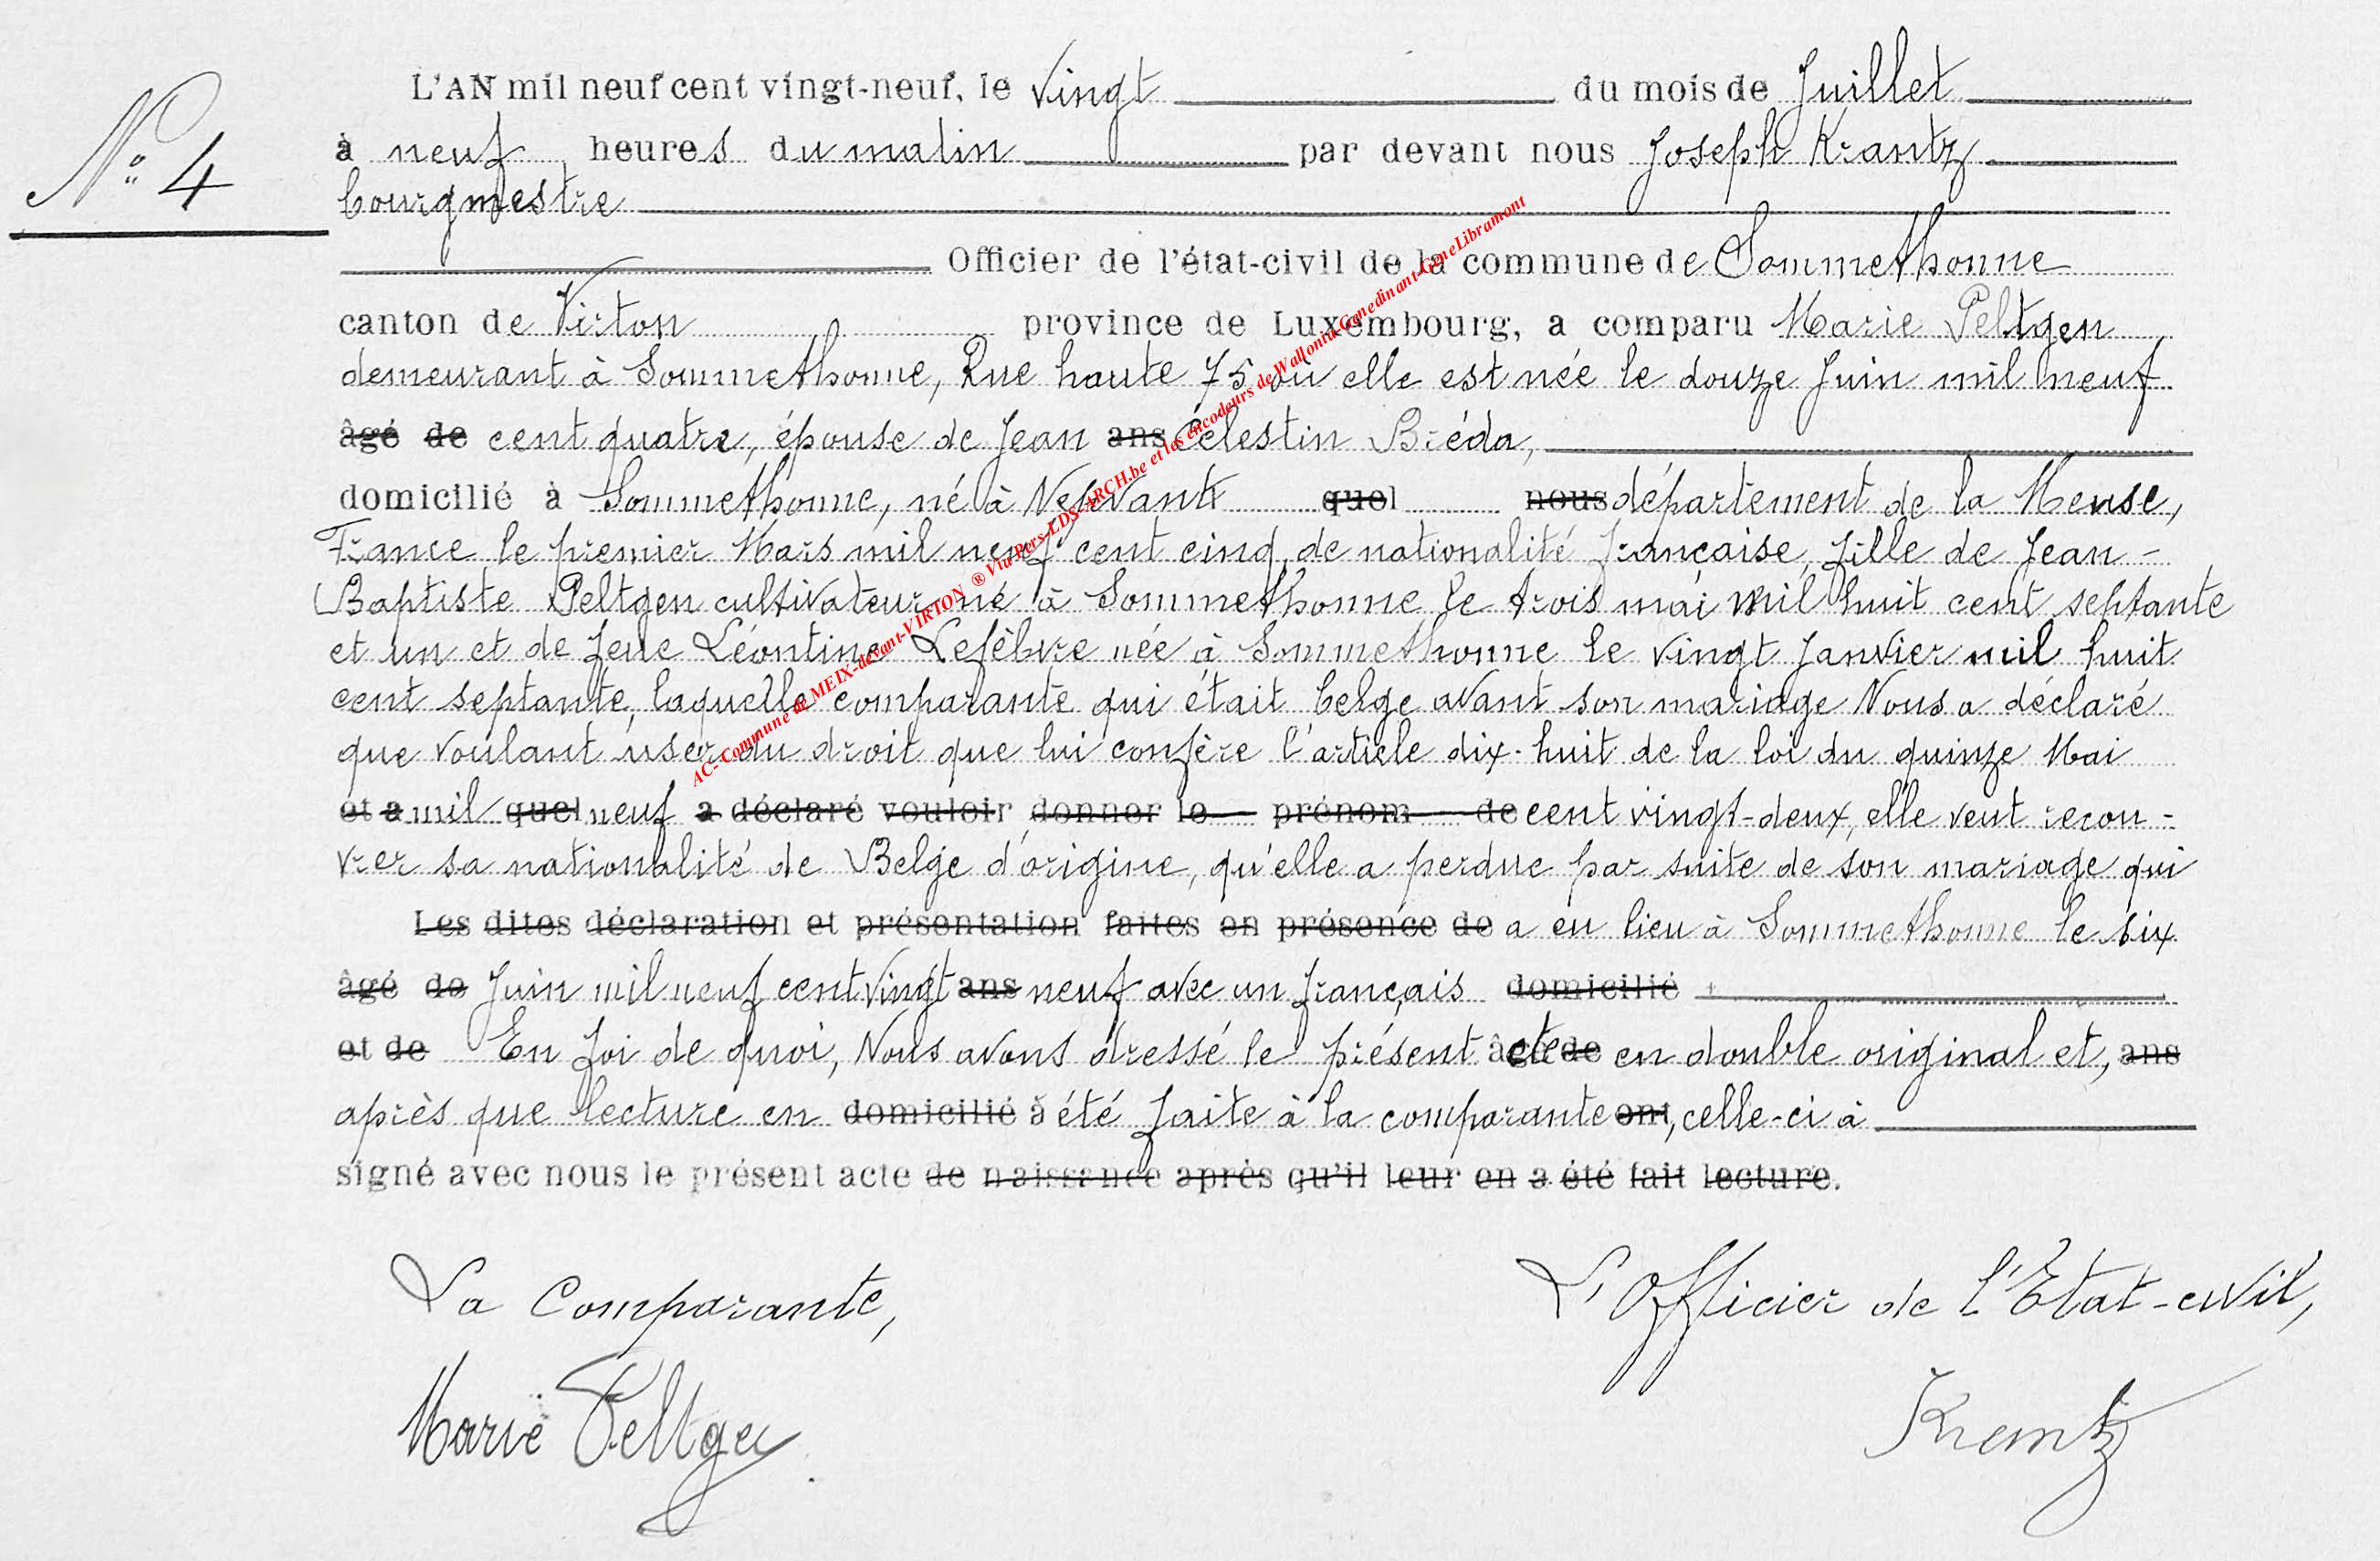 N° 4
L'AN mil neuf cent vingt-neuf, le vingt du mois de Juillet
à neuf heures du matin par devant nous Joseph Krantz
bourgmestre
Officier de l'état-civil de la commune de Sommethonne
canton de Virton province de Luxembourg, a comparu Marie Peltgen
demeurant à Sommethonne, Rue haute 75 où elle est née le douze Juin mil neuf
âgé de cent quatre, épouse de Jean ans Célestin Bréda,
domicilié à Sommethonne, né à quel nous département de la Meuse,
France le premier Mars mil neuf cent cinq, de nationalité française, fille de Jean-
Baptiste Peltgen cultivateur né à Sommethonne le trois mai mil huit cent septante
et un et de feue Léontine Lefèbvre née à Sommethonne le vingt Janvier mil huit
cent septante, laquelle comparante qui était belge avant son mariage Nous a déclaré
que voulant user du droit que lui confère l'article dix-huit de la loi du quinze Mai
et a mil quel neuf a déclaré vouloir donner le prénom de cent vingt-deux, elle veut recou-
vrer sa nationalité de Belge d'origine, qu'elle a perdue par suite de son mariage qui
Les dites déclaration et présentation faites en présence de a eu lieu à Sommethonne le six
âgé de Juin mil neuf cent vingt ans neuf avec un français domicilié
et de En foi de quoi, Nous avons dressé le présent acte de en double original et, ans
après que lecture en domicilié à été faite à la comparante ont, celle-ci à
signé avec nous le présent acte de naissance après qu'il leur en a été fait lecture.
La Comparante,
L'Officier de l'Etat-civil,
Marie Peltgen
Krantz
AC-Commune de MEIX-devant-VIRTON ® Via Pers-LDS-ARCH.be et les encodeurs de Wallonia-Genedinant-GeneLibramont